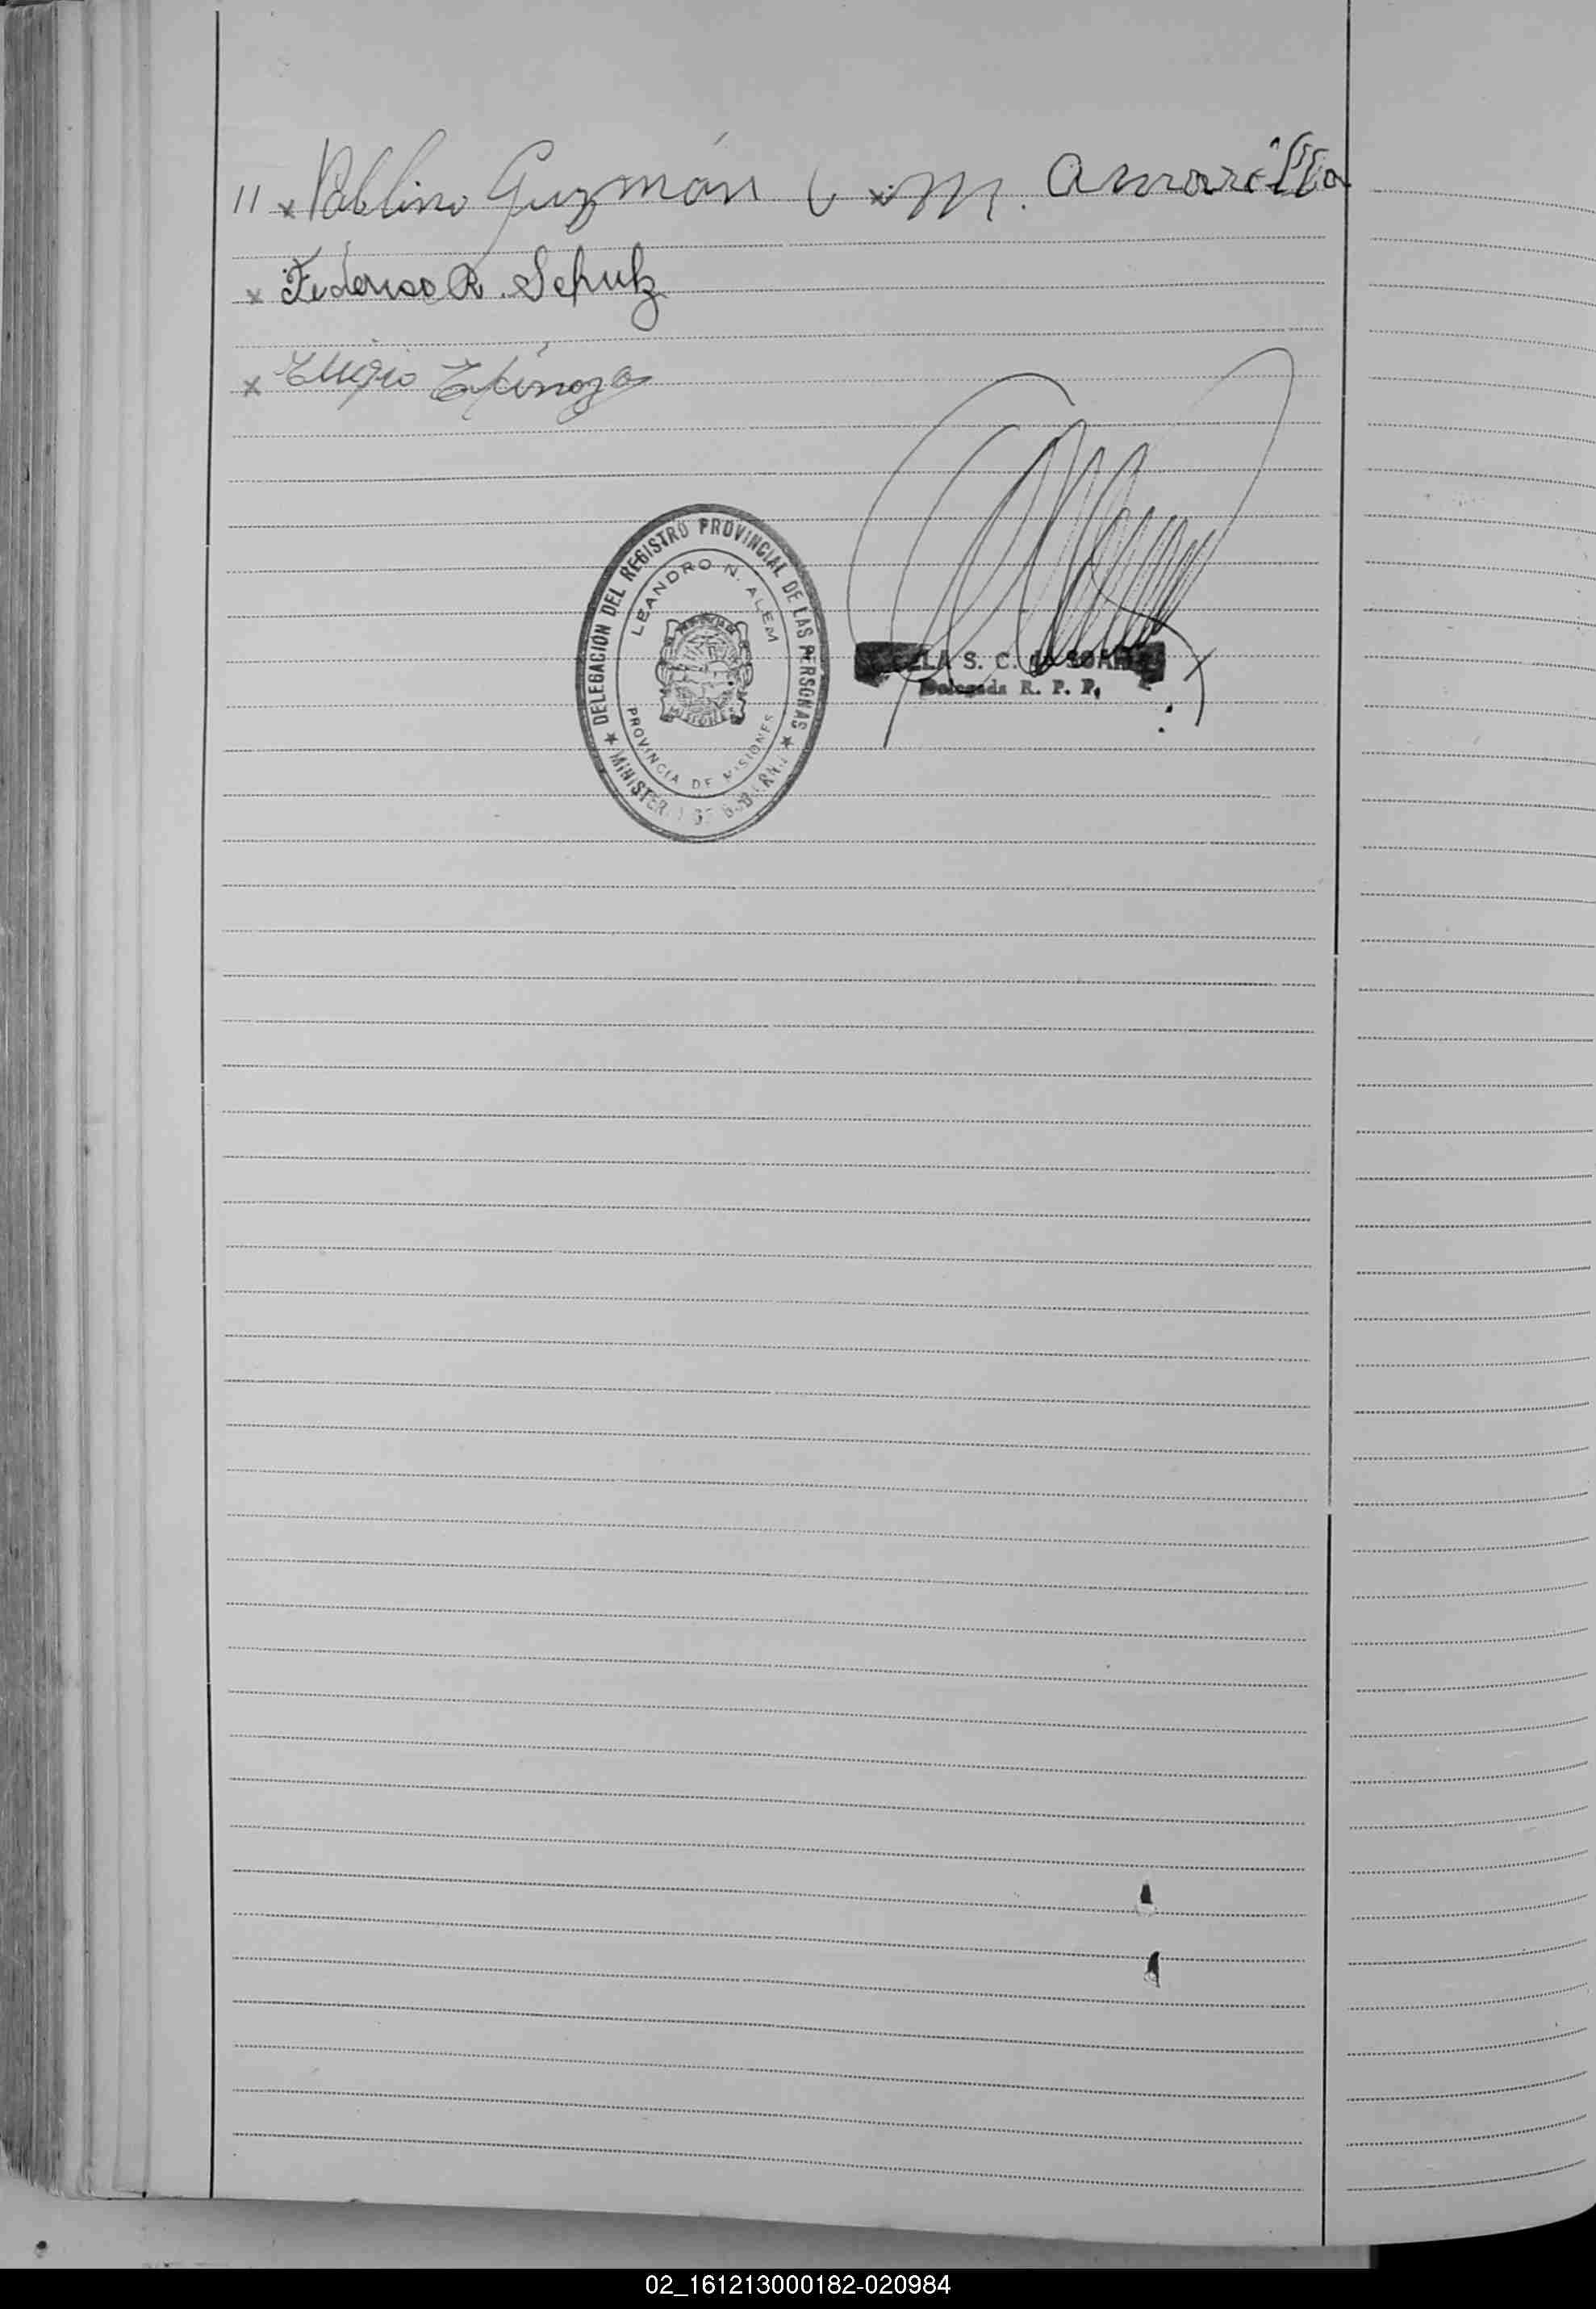 11 x Pablino Guzmán x M. Amarilla
x Federico R. Schulz
x Eligio Espínoza
DELEGACIÓN DEL REGISTRO PROVINCIAL DE LAS PERSONAS
LEANDRO N. ALEM
MISIONES
PROVINCIA DE MISIONES
★ MINISTERIO DE GOBIERNO ★
S. C. de SOAR
Delegada R. P. P.
02_161213000182-020984